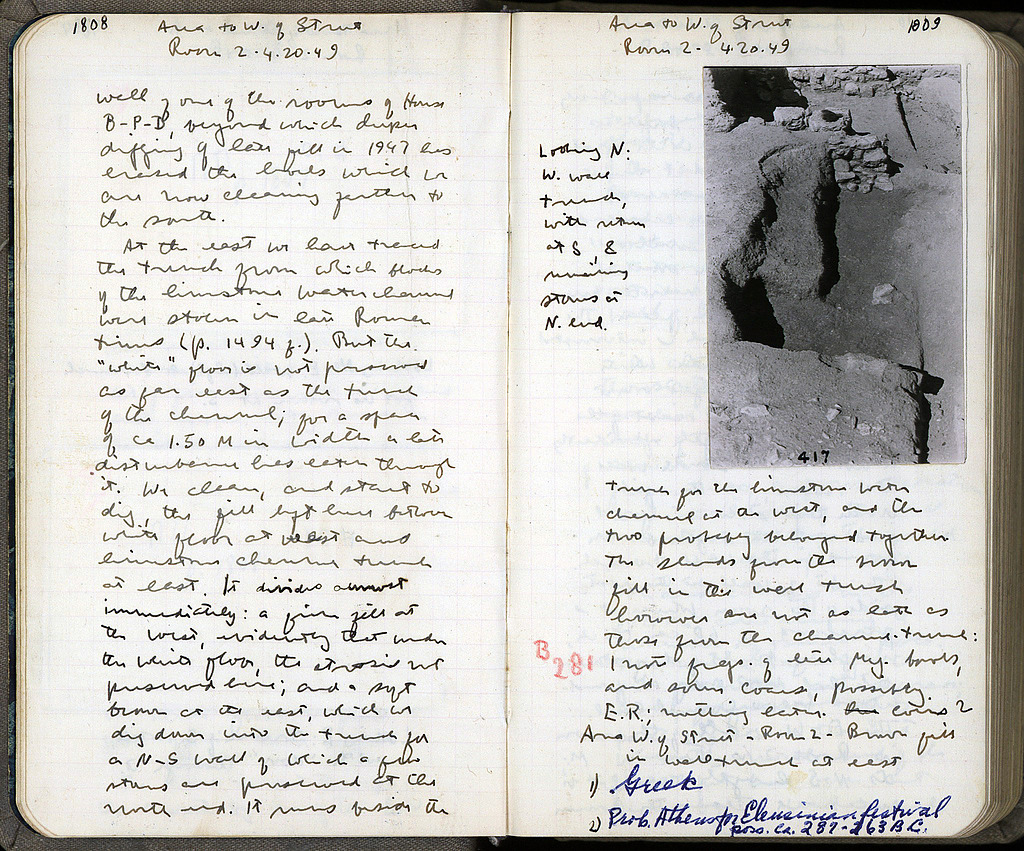 1808
Area to W. of Street
Room 2 - 4.20.49
wall of one of the rooms of House
B-P-D, beyond which deeper
digging of late fill in 1947 has
erased the levels which we
are now cleaning further to
the south.
At the east we have traced
the trench from which blocks
of the limestone water channel
were stolen in late Roman
times (p. 1494 f.). But the
"white" floor is not preserved
as far east as the trench
of the channel; for a space
of ca 1.50 M in width a late
disturbance has eaten through
it. We clean, and start to
dig, the fill left here between
white floor at west and
limestone channel trench
at east. It divides almost
immediately: a firm fill at
the west, evidently that under
the white floor, the strosis not
preserved here; and a soft
brown at the east, which we
dig down into the trench for
a N-S wall of which a few
stones are preserved at the
north end. It runs beside the
1809
Area to W. of Street
Room 2 - 4.20.49
Looking N:
W. wall
trench,
with return
at S, &
remaining
stones at
N. end.
417
trench for the limestone water
channel at the west, and the
two probably belonged together
The sherds from the brown
fill in this wall trench
however are not as late as
those from the channel-trench:
I note frags. of late Meg. bowls,
and some coarse, possibly
E.R.; nothing later. coins 2
B
281
Area W. of Street - Room 2 - Brown fill
in wall trench at east
1) Greek
2) Prob. Athens for Eleusinian festival
poss. ca. 287-263 B.C.